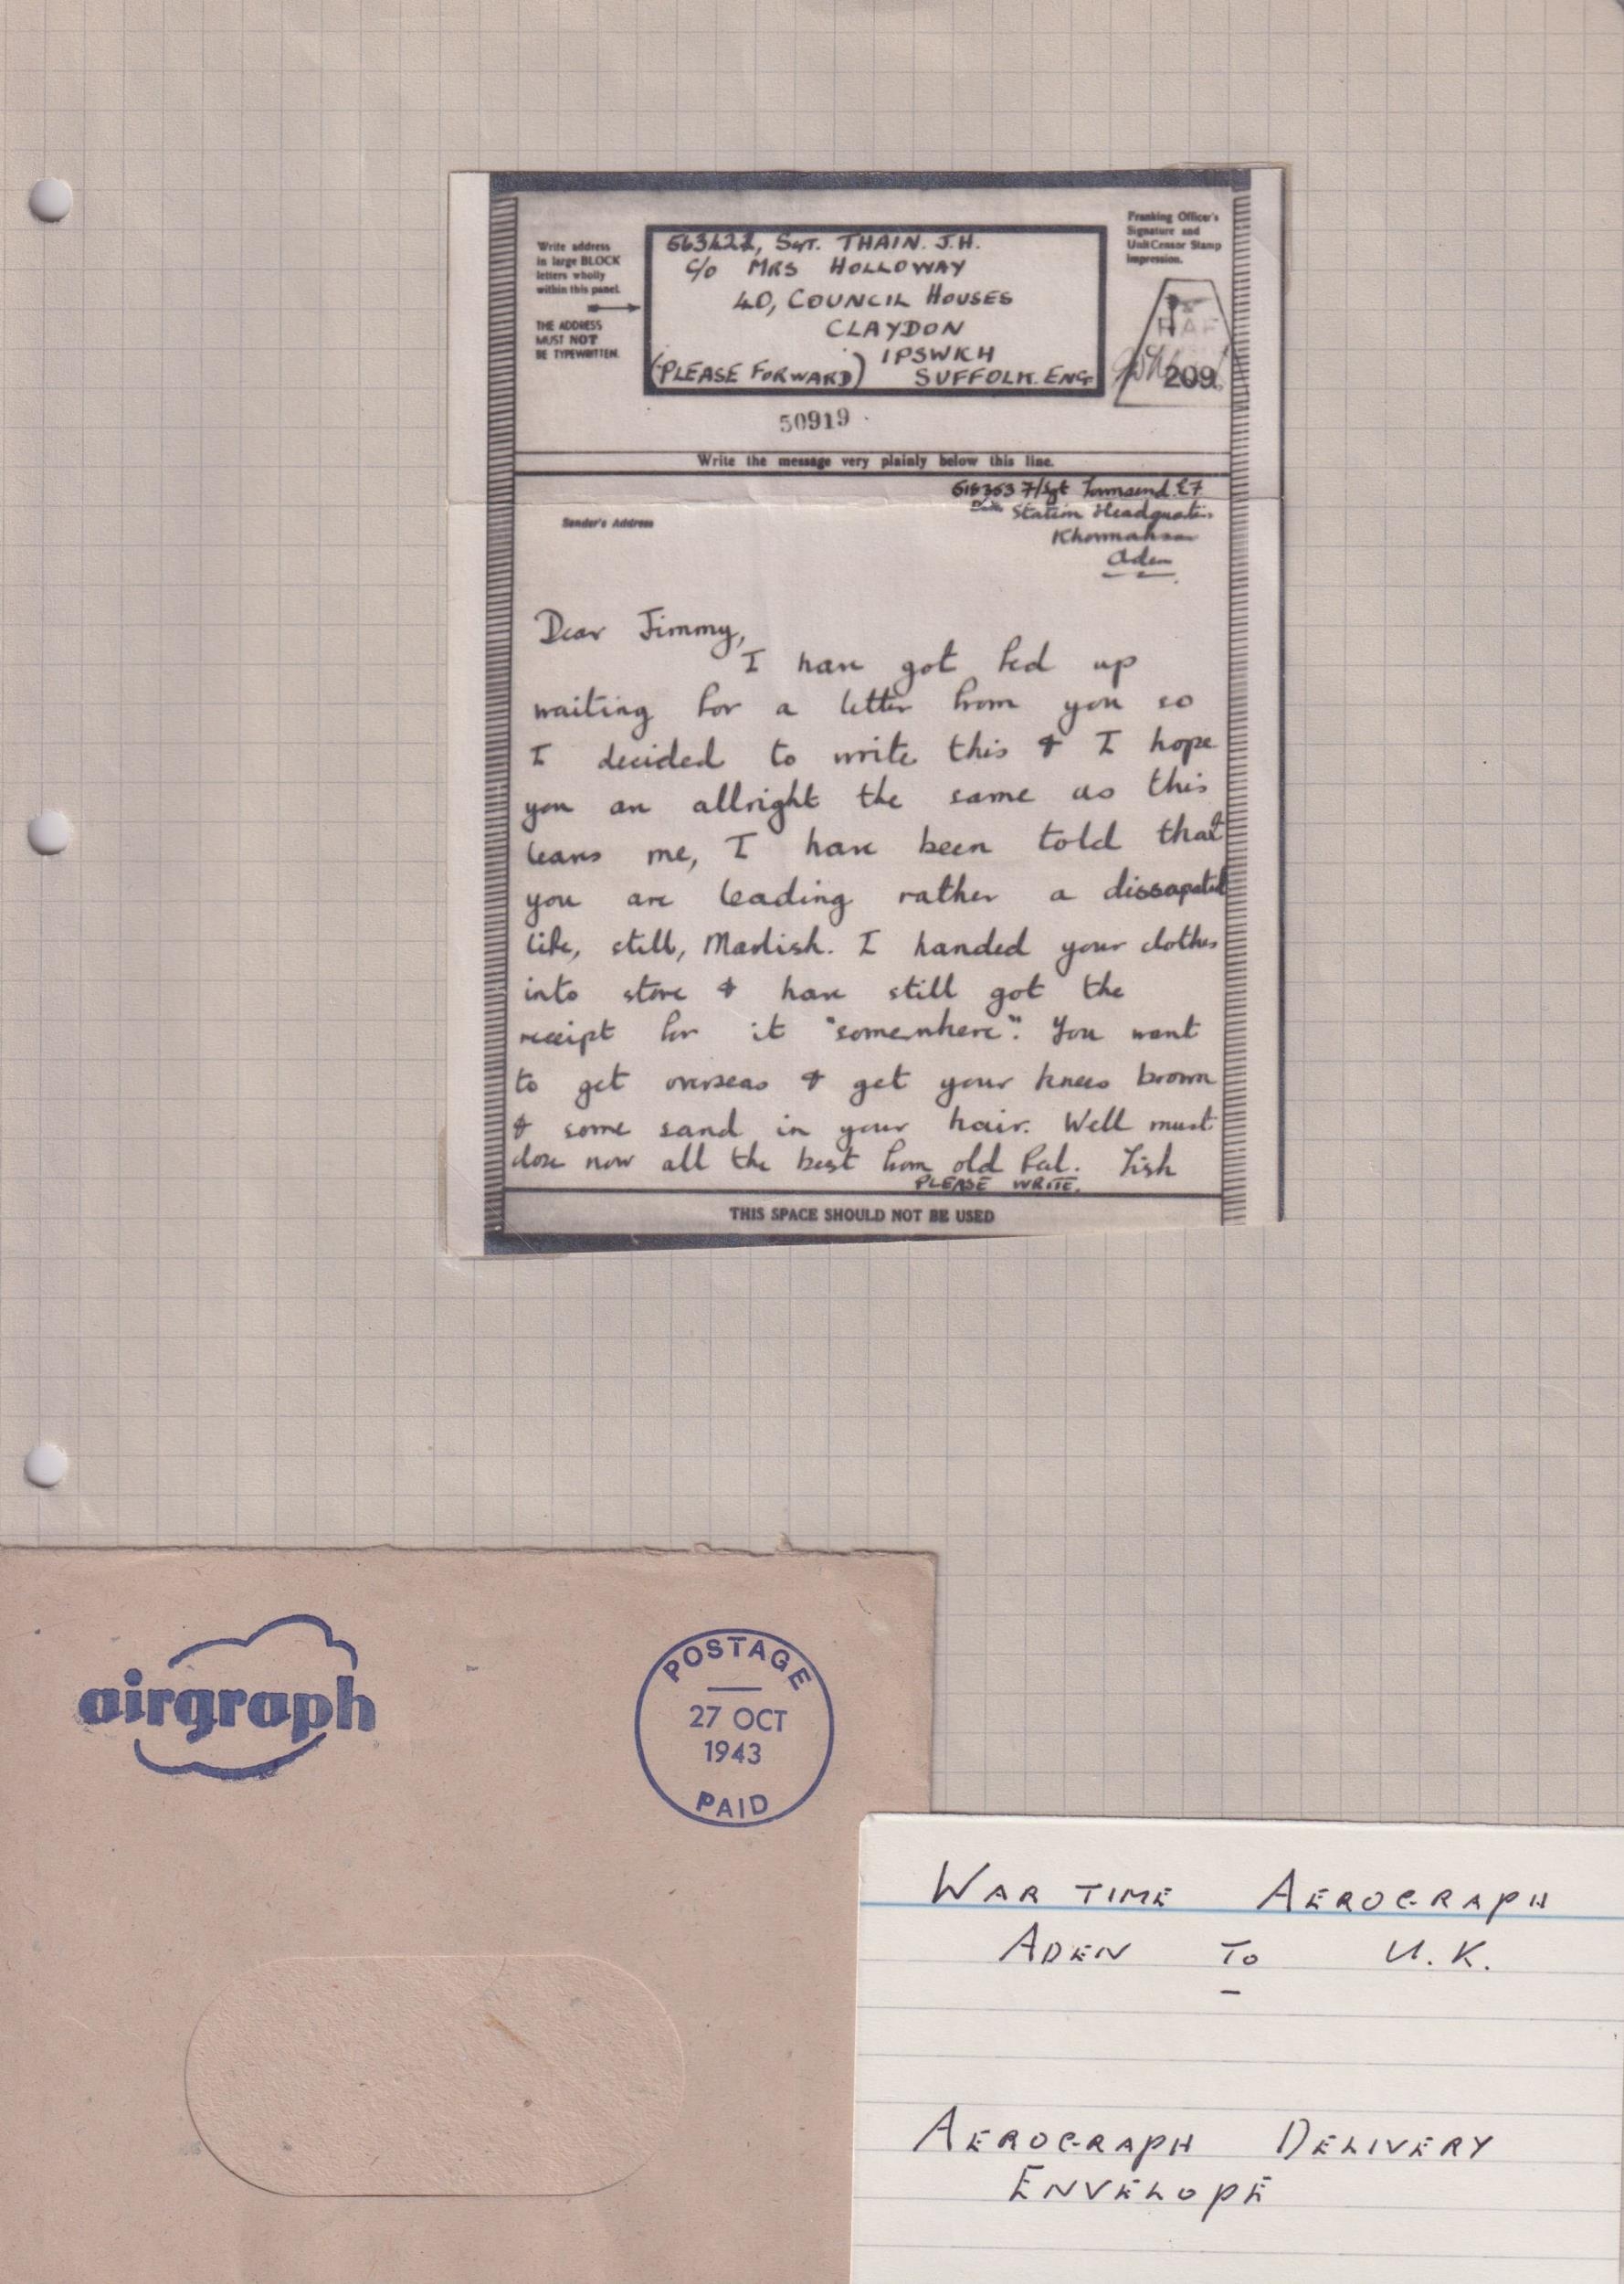 Write address
in large BLOCK
letters wholly
within this panel.
THE ADDRESS
MUST NOT
BE TYPEWRITTEN.
Sgt. THAIN. J.H.
C/O MRS HOLLOWAY
40, COUNCIL HOUSES
CLAYDON
IPSWICH
(PLEASE FORWARD) SUFFOLK. ENG
Franking Officer's
Signature and
Unit Censor Stamp
impression.
RAF
209
50919
Write the message very plainly below this line.
F/Sgt Townsend
Station Headquarters
Khormaksar
Aden
Sender's Address
Dear Jimmy,
I have got fed up
waiting for a letter from you so
I decided to write this & I hope
you are allright the same as this
leaves me, I have been told that
you are leading rather a dissapated
life, still, Marlish. I handed your clothes
into store & have still got the
receipt for it "somewhere". You want
to get overseas & get your knees brown
& some sand in your hair. Well must
close now all the best from old Pal. Tish
PLEASE WRITE.
THIS SPACE SHOULD NOT BE USED
airgraph
POSTAGE
27 OCT
1943
PAID
WAR TIME AEROGRAPH
ADEN TO U.K.
AEROGRAPH DELIVERY
ENVELOPE